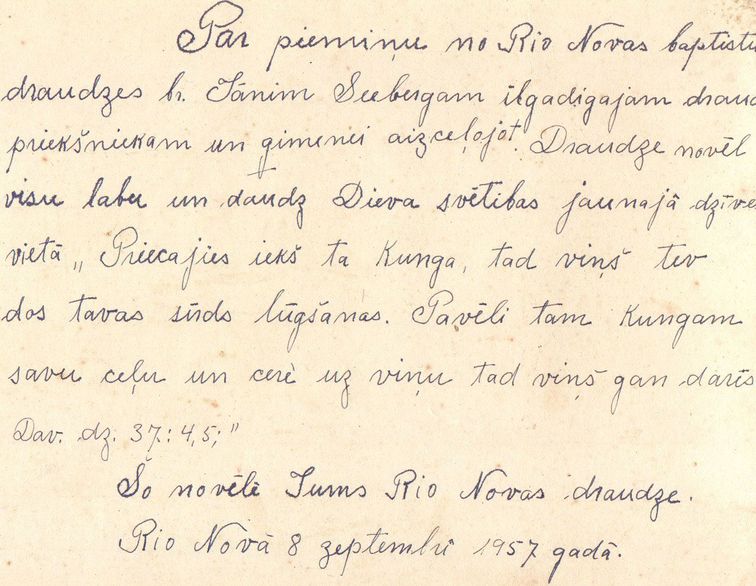 Par piemiņu no Rio Novas baptistu
draudzes br. Jānim Seebergam ilgadigajam draud
priekšniekam un ģimenei aizceļojot. Draudze novēl
visu labu un daudz Dieva svētibas jaunajā dzīve
vietā „ Priecajies iekš ta Kunga, tad viņš tev
dos tavas sirds lūgšanas. Pavēli tam Kungam
savu ceļu un cerē uz viņu tad viņš gan darīs
Dav. dz. 37.: 4,5; "
Šo novēlē Jums Rio Novas draudze.
Rio Novā 8 zeptembrī 1957 gadā.